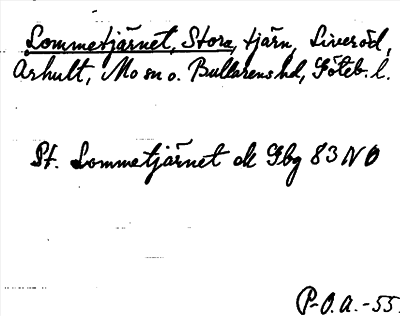 Lommetjärnet, Stora, tjärn, Liveröd,
Arhult, Mo sn o. Bullarens hd, Göteb. l.
St. Lommetjärnet ek Gbg 83 NO
P-O.A.-55.